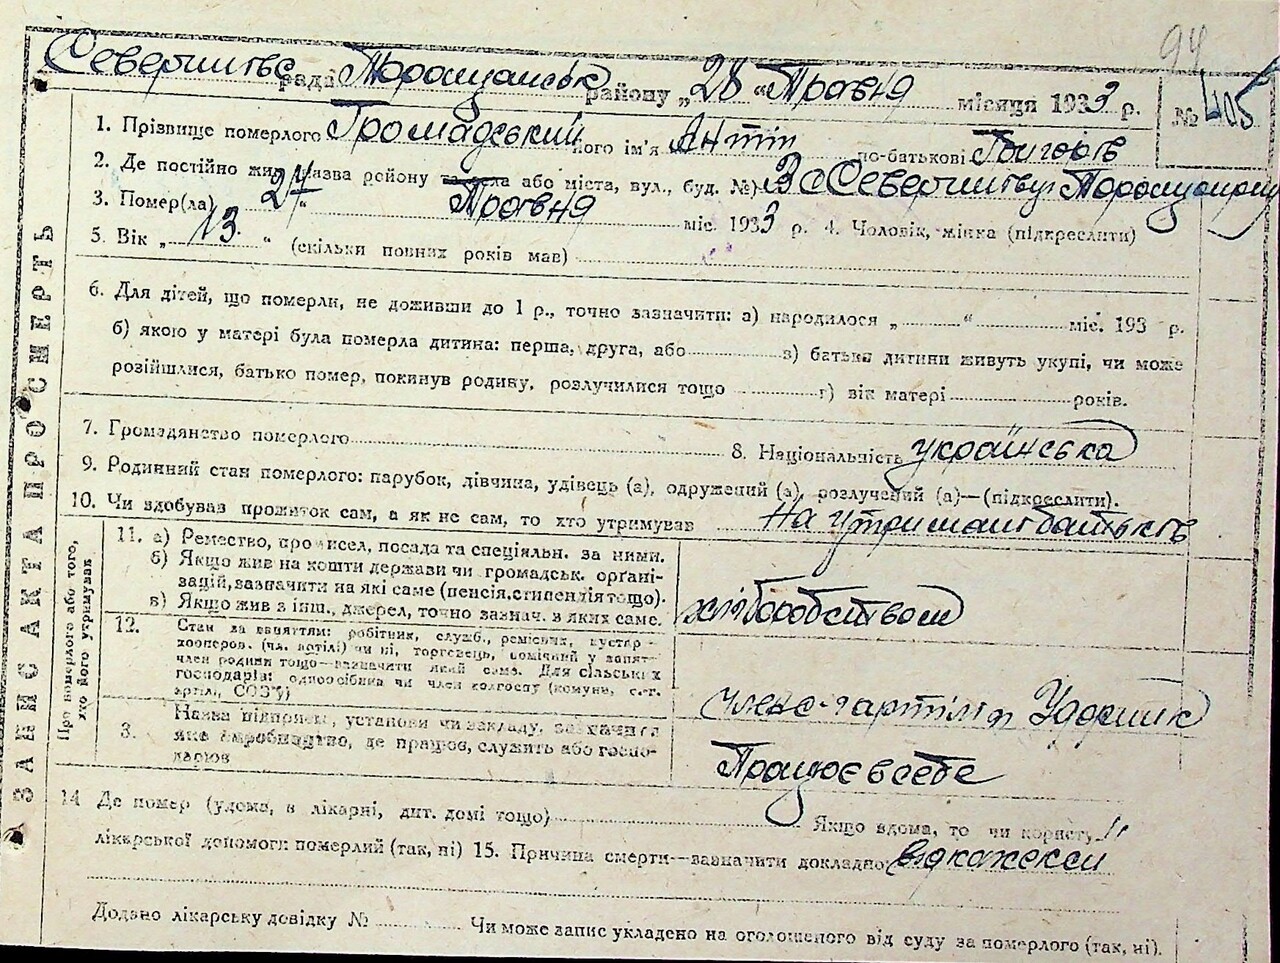 94
раді Торощанськ району „28“ Травня місяця 1933 р. № 405
1. Прізвище померлого Громадський його ім'я Антін по-батькові Григорів
2. Де постійно жив назва району та села або міста, вул., буд. №) З с
3. Помер(ла) 24 “ Травня міс. 1933 р. 4. Чоловік, жінка (підкреслити)
5. Вік „ 13. “ (скільки повних років мав)
6. Для дітей, що померли, не доживши до 1 р., точно зазначити: а) народилося „ “ міс. 193 р.
б) якою у матері була померла дитина: перша, друга, або в) батьки дитини живуть укупі, чи може
розійшлися, батько помер, покинув родину, розлучилися тощо г) вік матері років.
7. Громадянство померлого 8. Національність українська
9. Родинний стан померлого: парубок, дівчина, удівець (а), одружений (а), розлучений (а)—(підкреслити).
10. Чи здобував прожиток сам, а як не сам, то хто утримував на утримані батьків
ЗАПИС АКТА ПРО СМЕРТЬ
Про померлого або того,
хто його утримував
11. а) Ремество, промисел, посада та спеціяльн. за ними.
б) Якщо жив на кошти держави чи громадськ. органі-
зацій, зазначити на які саме (пенсія, стипендія тощо).
в) Якщо жив з інш. джерел, точно зазнач. з яких саме.
хліборобством
12. Стан за заняттям: робітник, служб., ремісник, кустар-
кооперов. (чл. артілі) чи ні, торговець, помічний у занят-
член родини тощо—зазначити який саме. Для сільських
господарів: одноосібник чи член колгоспу (комуни, с.-г.
артілі, СОЗ'у)
член артіли Ударник
3. Назва підприєм., установи чи закладу, зазначити
яке виробництво, де працює, служить або госпо-
дарює
Працює в себе
14 Де помер (удома, в лікарні, дит. домі тощо) Якщо вдома, то чи користу
лікарської допомоги померлий (так, ні) 15. Причина смерти—зазначити докладно
Додано лікарську довідку № Чи може запис укладено на оголошеного від суду за померлого (так, ні).